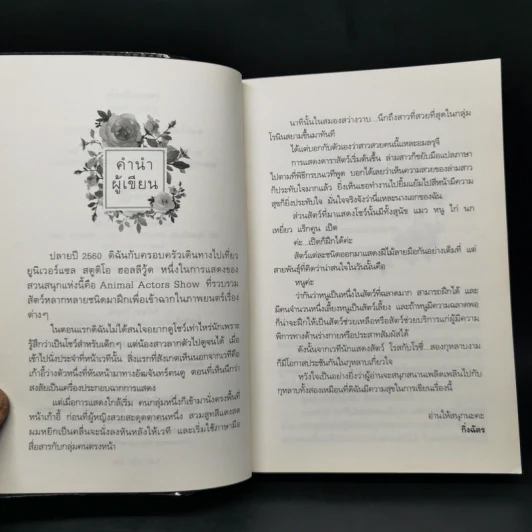 คำนำ
ผู้เขียน
ปลายปี 2560 ดิฉันกับครอบครัวเดินทางไปเที่ยว
ยูนิเวอร์แซล สตูดิโอ ฮอลลีวู้ด หนึ่งในการแสดงของ
สวนสนุกแห่งนี้คือ Animal Actors Show ที่รวบรวม
สัตว์หลากหลายชนิดมาฝึกเพื่อเข้าฉากในภาพยนตร์เรื่อง
ต่างๆ
ในตอนแรกดิฉันไม่ได้สนใจอยากดูโชว์เท่าไหร่นักเพราะ
รู้สึกว่าเป็นโชว์สำหรับเด็กๆ แต่น้องสาวลากตัวไปดูจนได้ เมื่อ
เข้าไปนั่งประจำที่หน้าเวที สิ่งแรกที่สังเกตเห็นนอกจากเวทีคือ
เก้าอี้ว่างตัวหนึ่งที่หันหน้ามาทางอัฒจันทร์คนดู ตอนที่เห็นนึกว่า
สงสัยเป็นเครื่องประกอบฉากการแสดง
แต่เมื่อการแสดงใกล้เริ่ม คนกลุ่มหนึ่งก็เข้ามานั่งตรงพื้นที่
หน้าเก้าอี้ ก่อนที่ผู้หญิงสวยสะดุดตาคนหนึ่ง สวมสูทสีแดงสด
ผมหยิกเป็นคลื่นจะนั่งลงหันหลังให้เวที และเริ่มใช้ภาษามือ
สื่อสารกับกลุ่มคนตรงหน้า
นาทีนั้นในสมองสว่างวาบ...นึกถึงสาวที่สวยที่สุดในกลุ่ม
โรนินสยามขึ้นมาทันที
ได้แต่บอกกับตัวเองว่าสาวสวยคนนี้แหละอมลรุจี
การแสดงดาราสัตว์เริ่มต้นขึ้น ล่ามสาวก็ขยับมือแปลภาษา
ไปตามที่พิธีกรบนเวทีพูด บอกได้เลยว่าเห็นความสวยของล่ามสาว
ก็ประทับใจมากแล้ว ยิ่งเห็นเธอทำงานไปยิ้มแย้มไปสีหน้ามีความ
สุขก็ยิ่งประทับใจ มั่นใจจริงจังว่านี่แหละนางเอกของฉัน
ส่วนสัตว์ที่มาแสดงโชว์นั้นมีทั้งสุนัข แมว หนู ไก่ นก
เหยี่ยว แร็กคูน เป็ด
ค่ะ...เป็ดก็ฝึกได้ค่ะ
สัตว์แต่ละชนิดออกมาแสดงฝีไม้ลายมือกันอย่างเต็มที่ แต่
สายพันธุ์ที่ดิฉันสนใจในวันนั้นคือ
หนูค่ะ
ว่ากันว่าหนูเป็นหนึ่งในสัตว์ที่ฉลาดมาก สามารถฝึกได้ และ
มีคนจำนวนหนึ่งเลี้ยงหนูเป็นสัตว์เลี้ยง และถ้าหนูมีความฉลาดพอ
ก็น่าจะฝึกให้เป็นสัตว์ช่วยเหลือหรือสัตว์ช่วยบริการแก่ผู้มีความ
พิการทางด้านร่างกายหรือประสาทสัมผัสได้
ดังนั้นจากเวทีนักแสดงสัตว์ โรสกับโรซี่...สองกุหลาบงาม
ก็มีโอกาสประชันกันในกุหลาบเกี่ยวใจ
หวังใจเป็นอย่างยิ่งว่าผู้อ่านจะสนุกสนานเพลิดเพลินไปกับ
กุหลาบทั้งสองเหมือนที่ดิฉันมีความสุขในการเขียนเรื่องนี้
อ่านให้สนุกนะคะ
กิ่งฉัตร